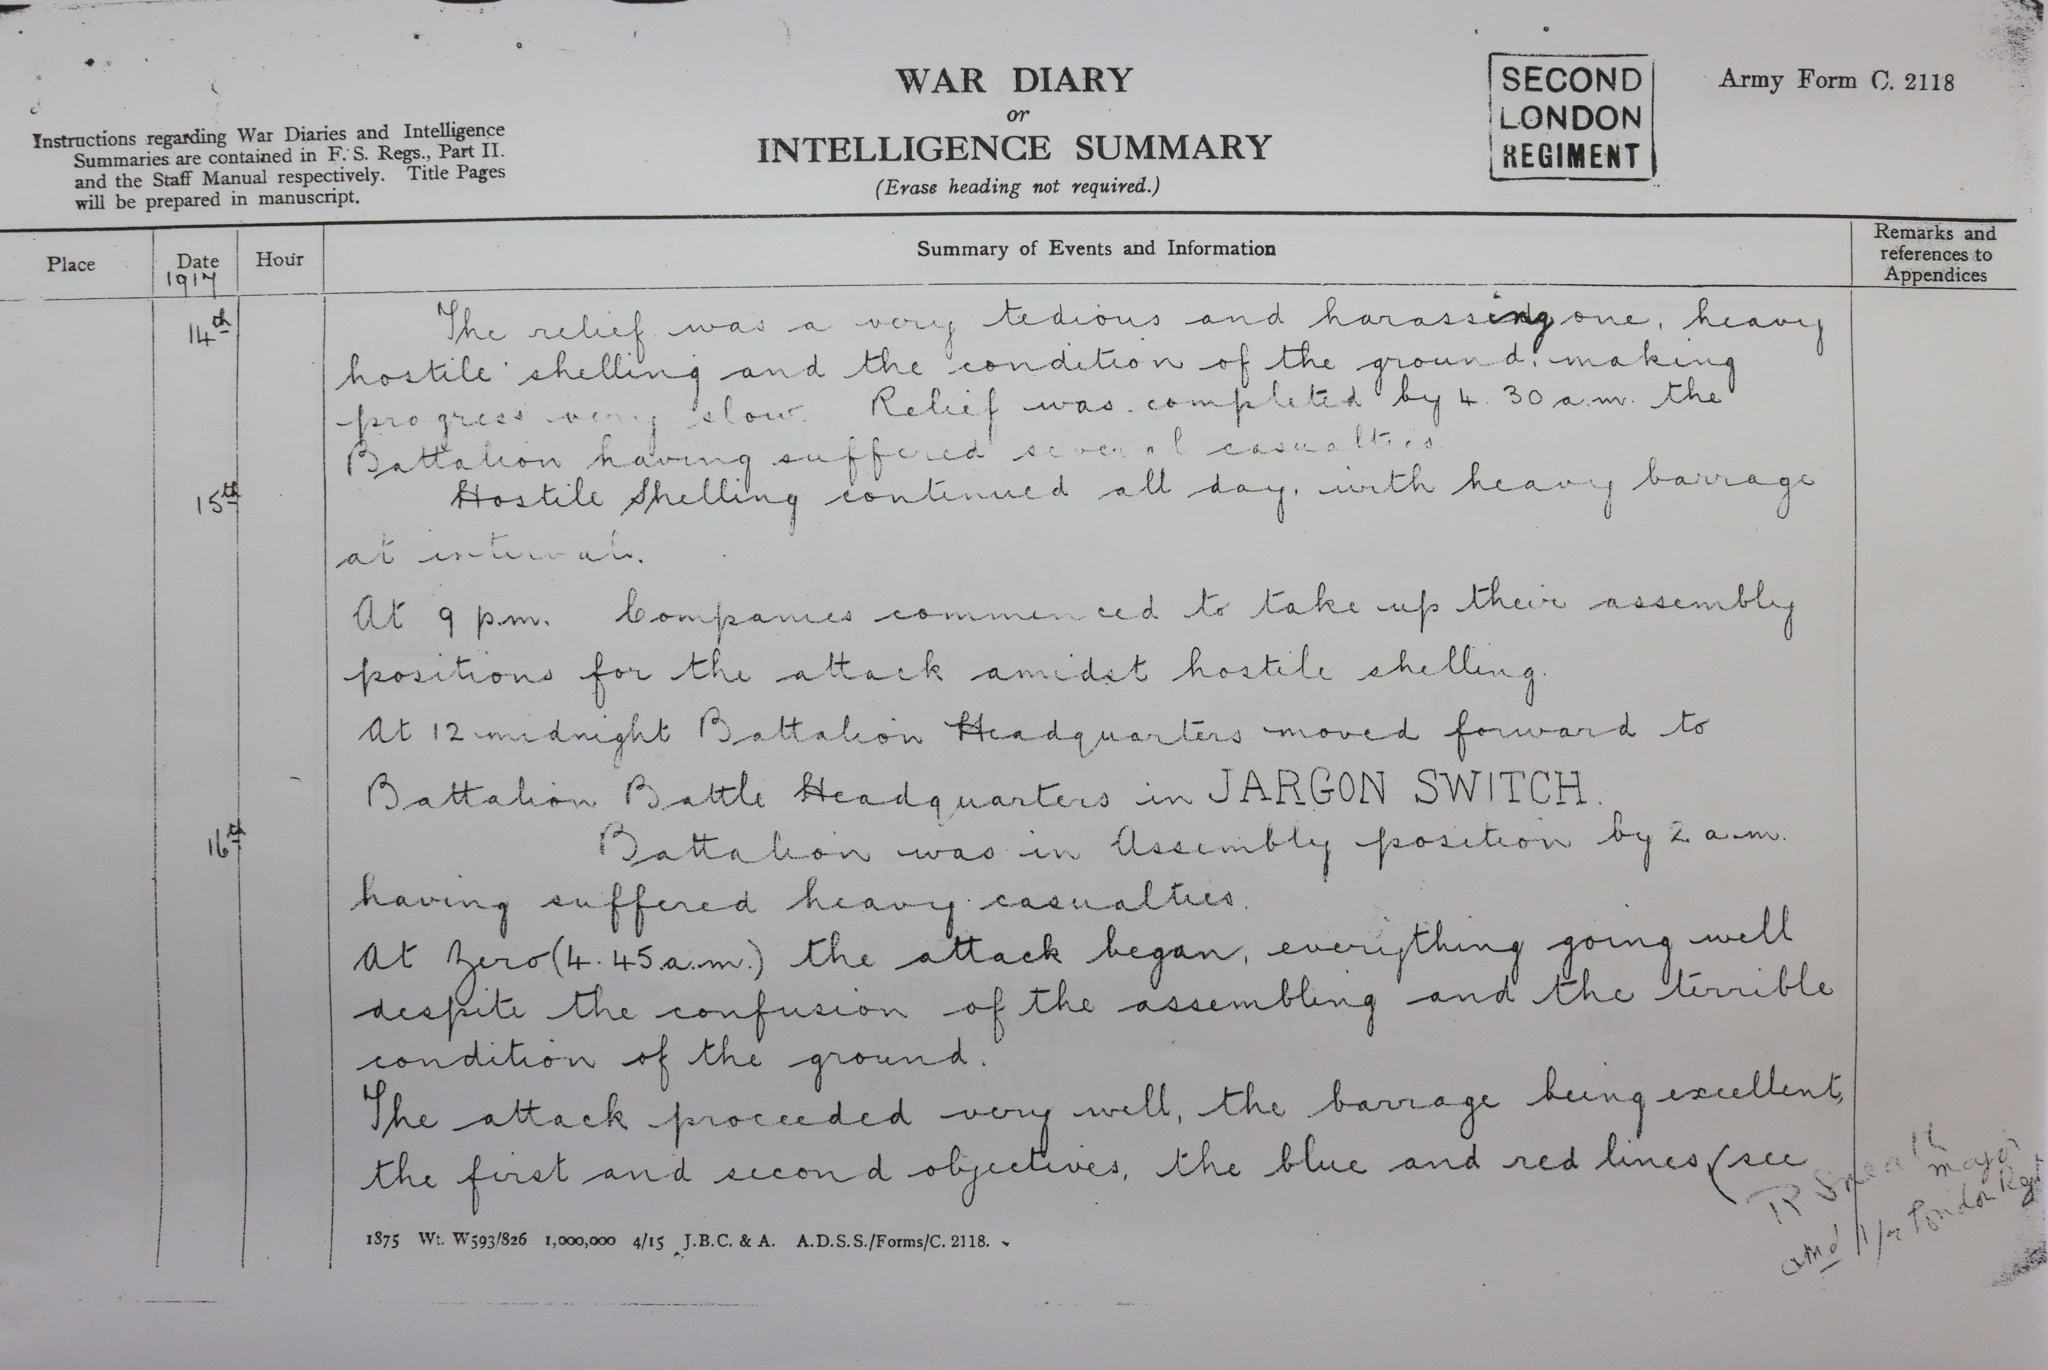 WAR DIARY
or
INTELLIGENCE SUMMARY
(Erase heading not required.)
SECOND
LONDON
REGIMENT
Army Form C. 2118
Instructions regarding War Diaries and Intelligence
Summaries are contained in F. S. Regs., Part II.
and the Staff Manual respectively. Title Pages
will be prepared in manuscript.
Place
Date
1917
Hour
Summary of Events and Information
Remarks and
references to
Appendices
14th
The relief was a very tedious and harassing one, heavy
hostile shelling and the condition of the ground, making
progress very slow. Relief was completed by 4.30 a.m. the
Battalion having suffered several casualties.
15th
Hostile Shelling continued all day, with heavy barrage
at intervals.
At 9 p.m. Companies commenced to take up their assembly
positions for the attack amidst hostile shelling.
At 12 midnight Battalion Headquarters moved forward to
Battalion Battle Headquarters in JARGON SWITCH.
16th
Battalion was in Assembly position by 2 a.m.
having suffered heavy casualties.
At Zero (4.45 a.m.) the attack began, everything going well
despite the confusion of the assembling and the terrible
condition of the ground.
The attack proceeded very well, the barrage being excellent,
the first and second objectives, the blue and red lines (see
major
London Regt
1875 Wt. W593/826 1,000,000 4/15 J.B.C. & A. A.D.S.S./Forms/C. 2118.